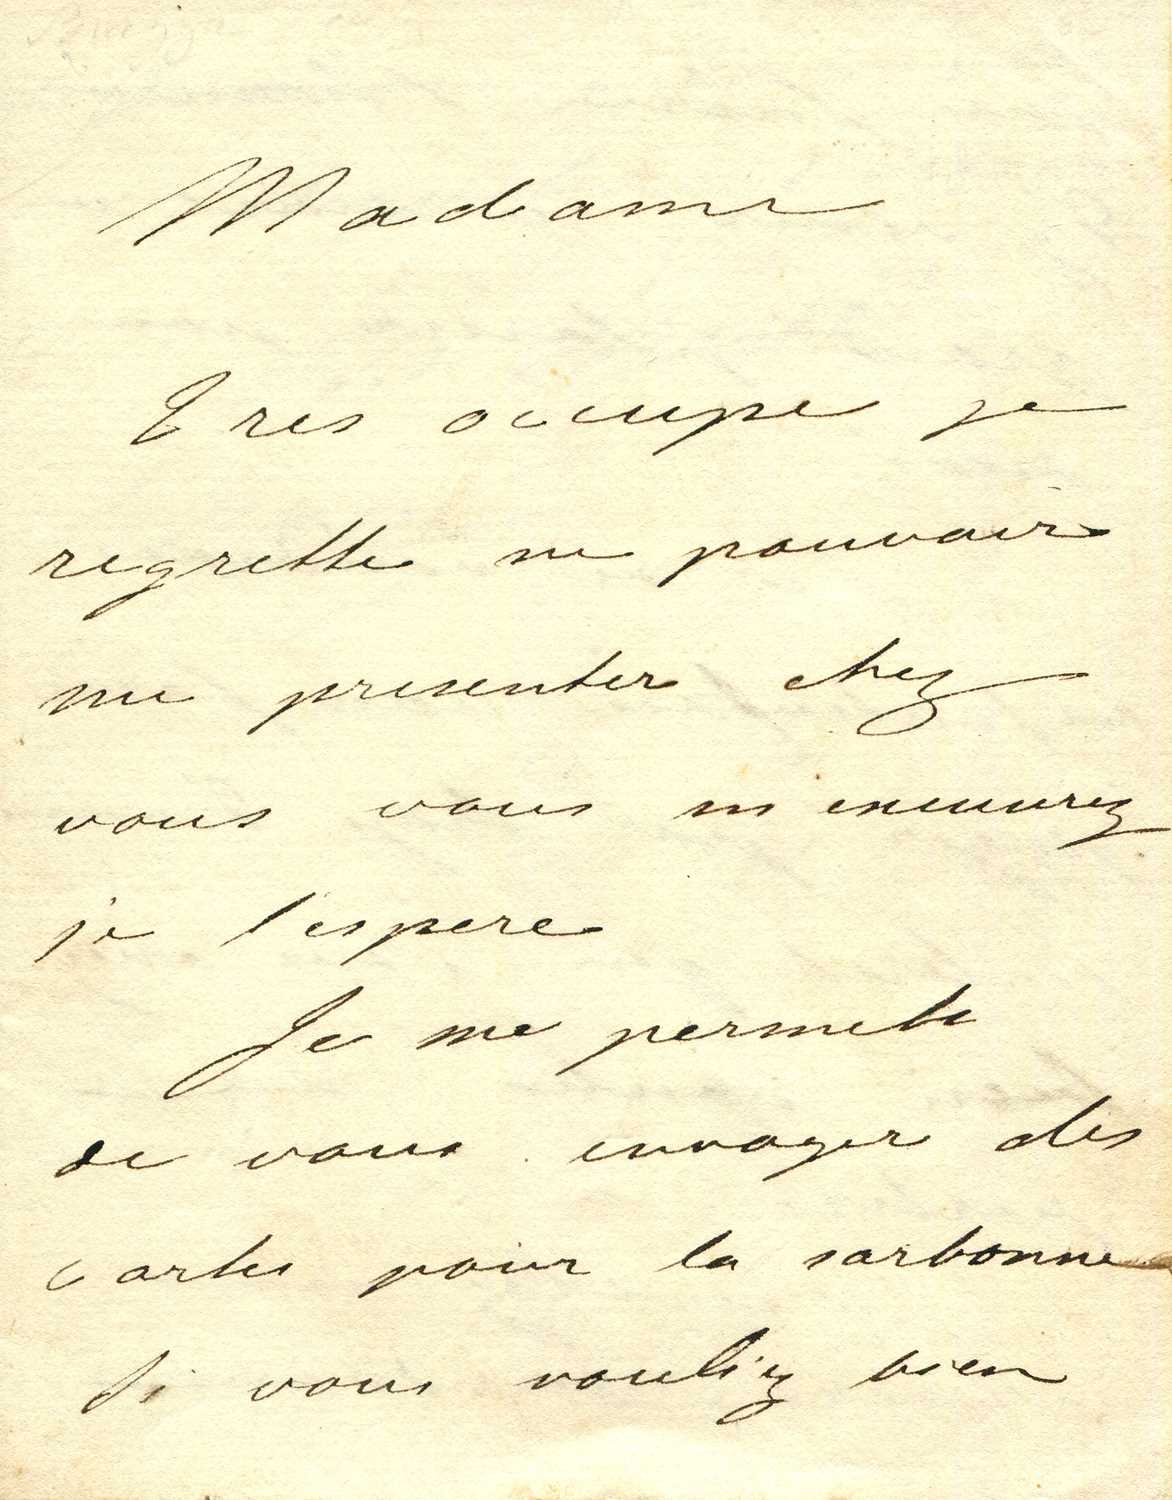 Madame
Tres occupe je
regrette ne pouvoir
me presenter chez
vous vous m'excuserez
je l'espere
Je me permets
de vous envoyer des
cartes pour la sorbonne
Si vous vouliez bien